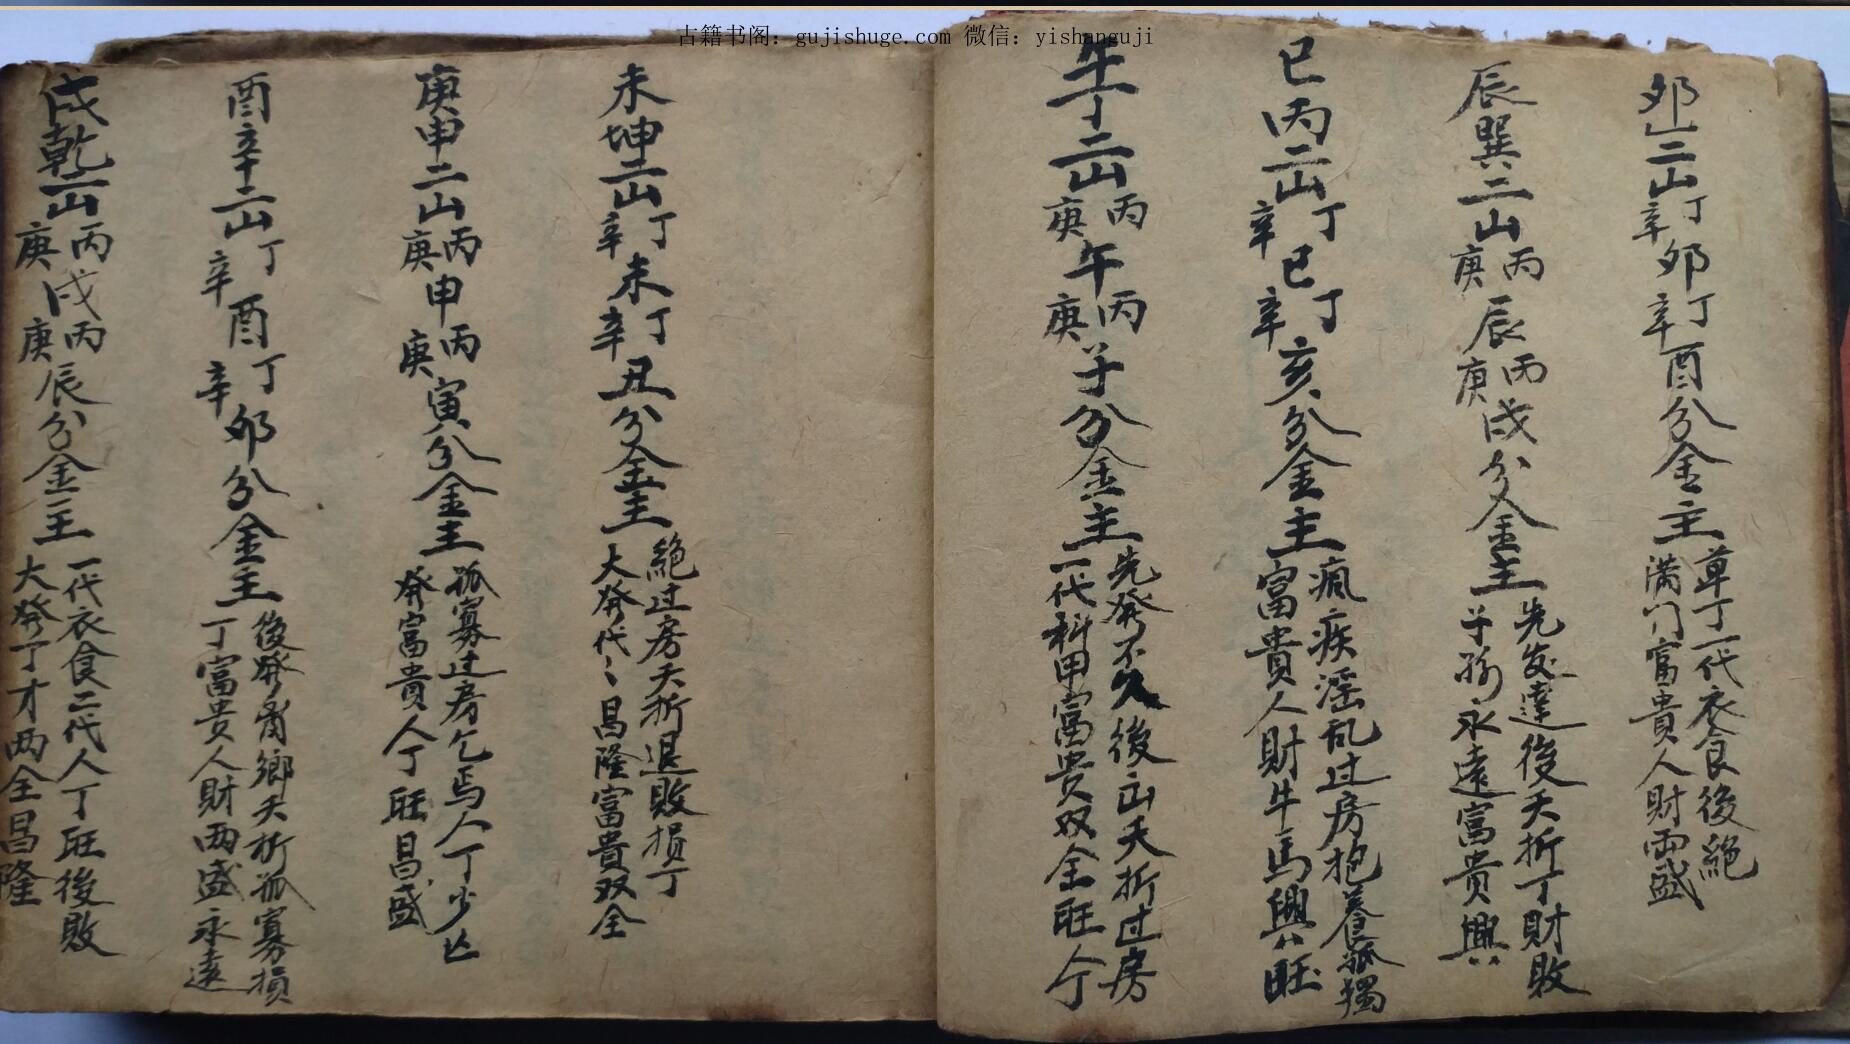 古籍书阁：gujishuge.com 微信：yishanguji
卯乙二山丁辛卯丁辛酉分金主
草丁一代衣食後絕
满门富貴人財兩盛
辰巽二山丙庚辰丙庚戌分金主
先发達後夭折丁財敗
子孫永遠富贵興
巳丙二山丁辛巳丁辛亥分金主
瘋疾淫乱过房抱養孤獨
富貴人財牛馬興旺
午丁二山丙庚午丙庚子分金主
先發不久後出夭折过房
一代科甲富贵双全旺人丁
未坤二山丁辛未丁辛丑分金主
絕过房夭折退敗损丁
大發代〻昌隆富貴双全
庚申二山丙庚申丙庚寅分金主
孤寡过房乞焉人丁少亡
發富貴人丁旺昌盛
酉辛二山丁辛酉丁辛卯分金主
後發离鄉夭折孤寡損
丁富贵人財两盛永遠
戌乾二山丙庚戌丙庚辰分金主
一代衣食二代人丁旺後敗
大發丁才两全昌隆